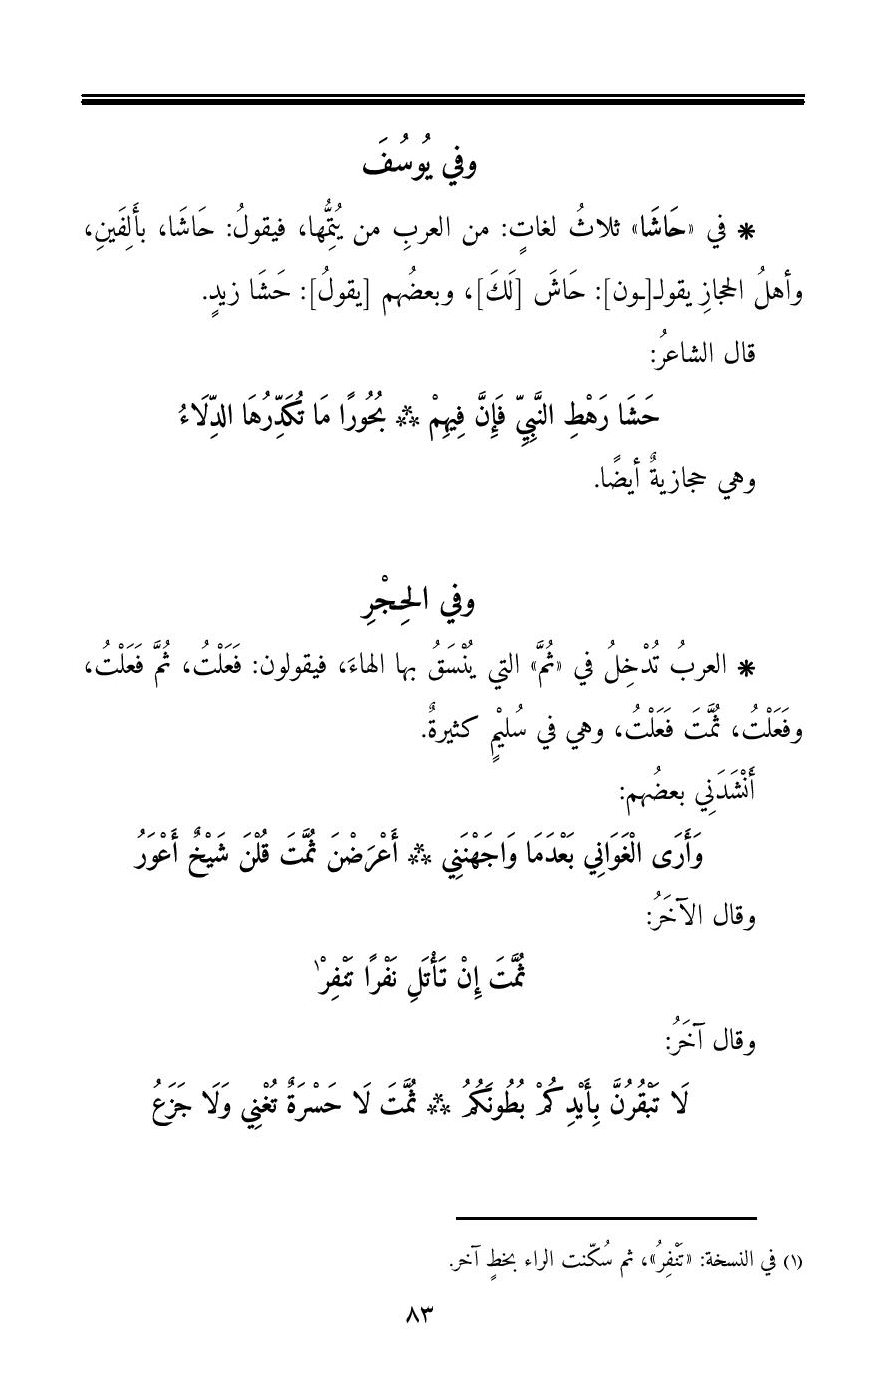 وفي يُوسُفَ
* في «حَاشَا» ثلاثُ لغاتٍ: من العربِ من يُتِمُّها، فيقولُ: حَاشَا، بأَلِفَينِ،
وأهلُ الحجازِ يقولـ[ـون]: حَاشَ [لَكَ]، وبعضُهم [يقولُ]: حَشَا زيدٍ.
قال الشاعرُ:
حَشَا رَهْطِ النَّبِيِّ فَإِنَّ فِيهِمْ ⁂ بُحُورًا مَا تُكَدِّرُهَا الدِّلَاءُ
وهي حجازيةٌ أيضًا.
وفي الحِجْرِ
* العربُ تُدْخِلُ في «ثُمَّ» التي يُنْسَقُ بها الهاءَ، فيقولون: فَعَلْتُ، ثُمَّ فَعَلْتُ،
وفَعَلْتُ، ثُمَّتَ فَعَلْتُ، وهي في سُليْمٍ كثيرةٌ.
أَنْشَدَنِي بعضُهم:
وَأَرَى الْغَوَانِي بَعْدَمَا وَاجَهْنَنِي ⁂ أَعْرَضْنَ ثُمَّتَ قُلْنَ شَيْخٌ أَعْوَرُ
وقال الآخَرُ:
ثُمَّتَ إِنْ تَأْتَلِ نَفْرًا تَنْفِرْ١
وقال آخَرُ:
لَا تَبْقُرُنَّ بِأَيْدِكُمْ بُطُونَكُمُ ⁂ ثُمَّتَ لَا حَسْرَةٌ تُغْنِي وَلَا جَزَعُ
(١) في النسخة: «تَنْفِرُ»، ثم سُكّنت الراء بخطٍ آخر.
٨٣